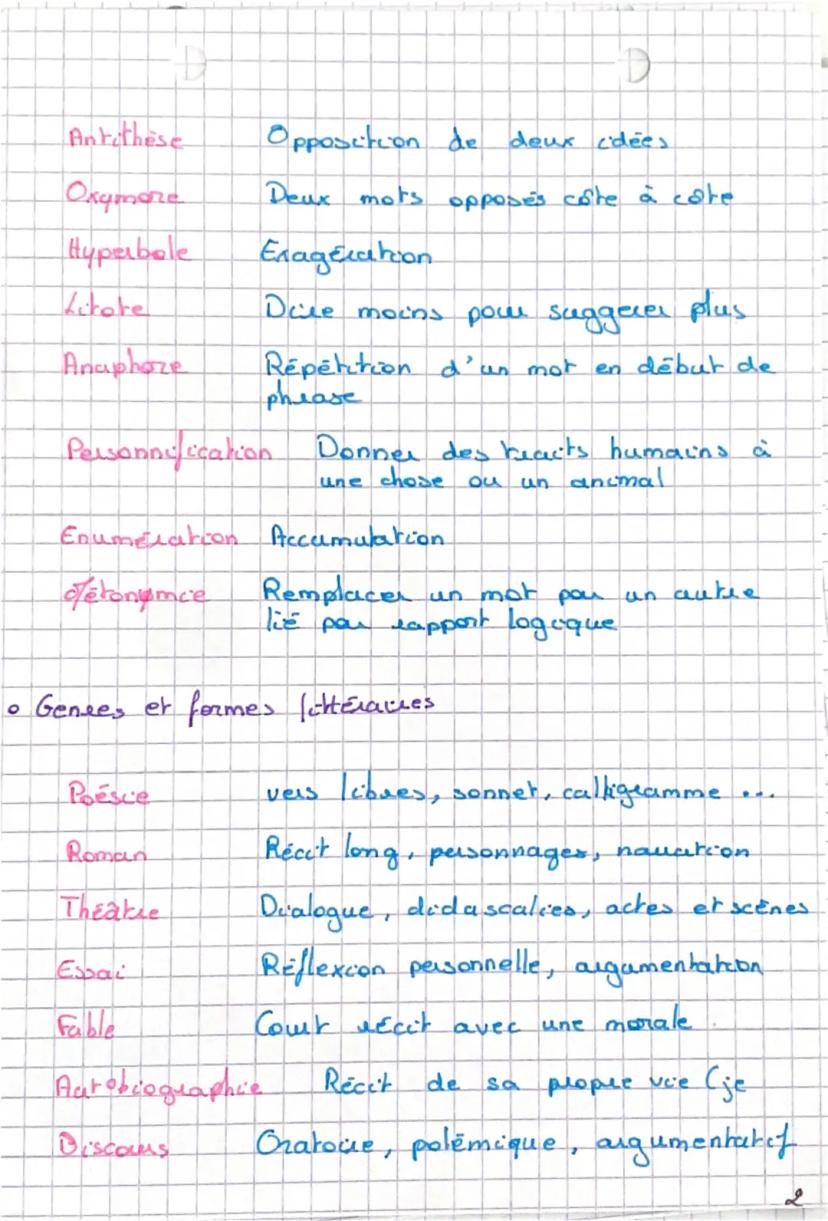 Antithèse Opposition de deux idées
Oxymore Deux mots opposés côte à côte
Hyperbole Exagération
Litote Dire moins pour suggerer plus
Anaphore Répétition d'un mot en début de
phrase
Personnification Donner des traits humains à
une chose ou un animal
Enumération Accumulation
Métonymie Remplacer un mot par un autre
lié par rapport logique
o Genres et formes littéraires
Poésie vers libres, sonnet, calligramme ...
Roman Récit long, personnages, narration
Théâtre Dialogue, didascalies, actes et scènes
Essai Réflexion personnelle, argumentation
Fable Court récit avec une morale.
Autobiographie Récit de sa propre vie (je
Discours Oratoire, polémique, argumentatif
2